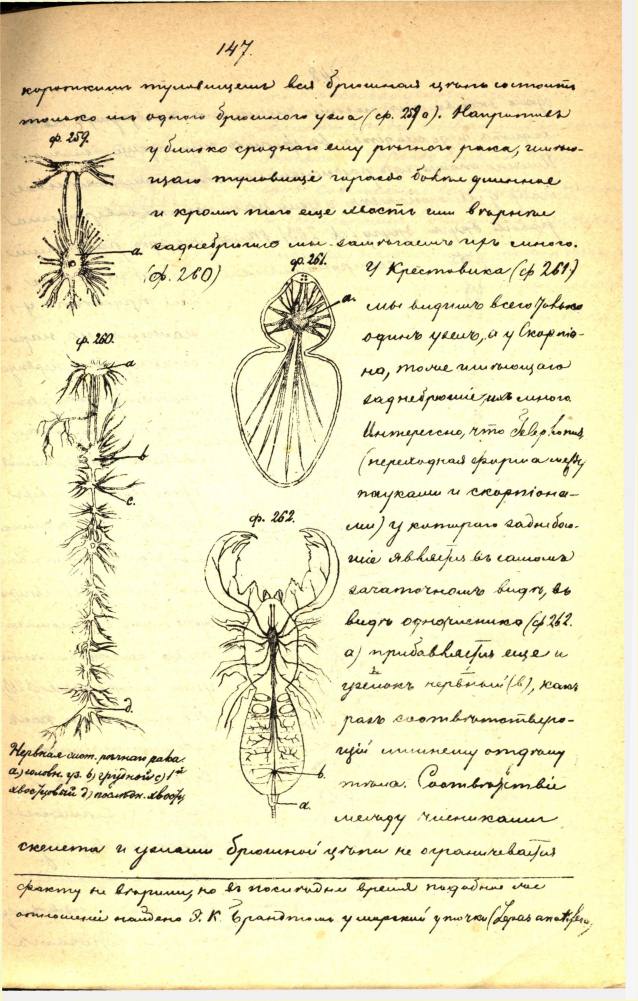 147.
короткимъ туловищемъ вся брюшная цѣпь состоитъ
только изъ одного брюшного узла (ф. 259 а). Напротивъ
ф. 259.
у близко сроднаго ему рѣчного рака, имѣю-
щаго туловище гораздо болѣе длинное
и кромѣ того еще хвостъ или
заднебрюшіе мы замѣчаемъ ихъ много.
(ф. 260)
а.
ф. 261.
а.
У Крестовика (ф 261)
мы видимъ всего только
одинъ узелъ, а у Скорпіо-
на, тоже имѣющаго
заднебрюшіе, ихъ много
Интересно, что
(переходная форма между
пауками и скорпіона-
ми) у котораго заднебрю-
шіе является въ самомъ
зачаточномъ видѣ, въ
видѣ одночленика (ф 262.
а) прибавляется еще и
узелокъ нервный (в), какъ
разъ соотвѣтствую-
щій лишнему отдѣлу
тѣла. Соотвѣтствіе
между члениками
ф. 260.
а
в
с.
д.
Нервная сист. рѣчного рака.
а) головн. уз. в) грудной с) 1й
хвостовый д) послѣдн. хвост.
ф. 262.
в.
а.
скелета и узлами брюшной цѣпи не ограничевается
факту не вѣрили, но въ послѣднее время подобное же
отношеніе найдено Э. К. Брандтомъ у морской уточки (Lepas anatifera)